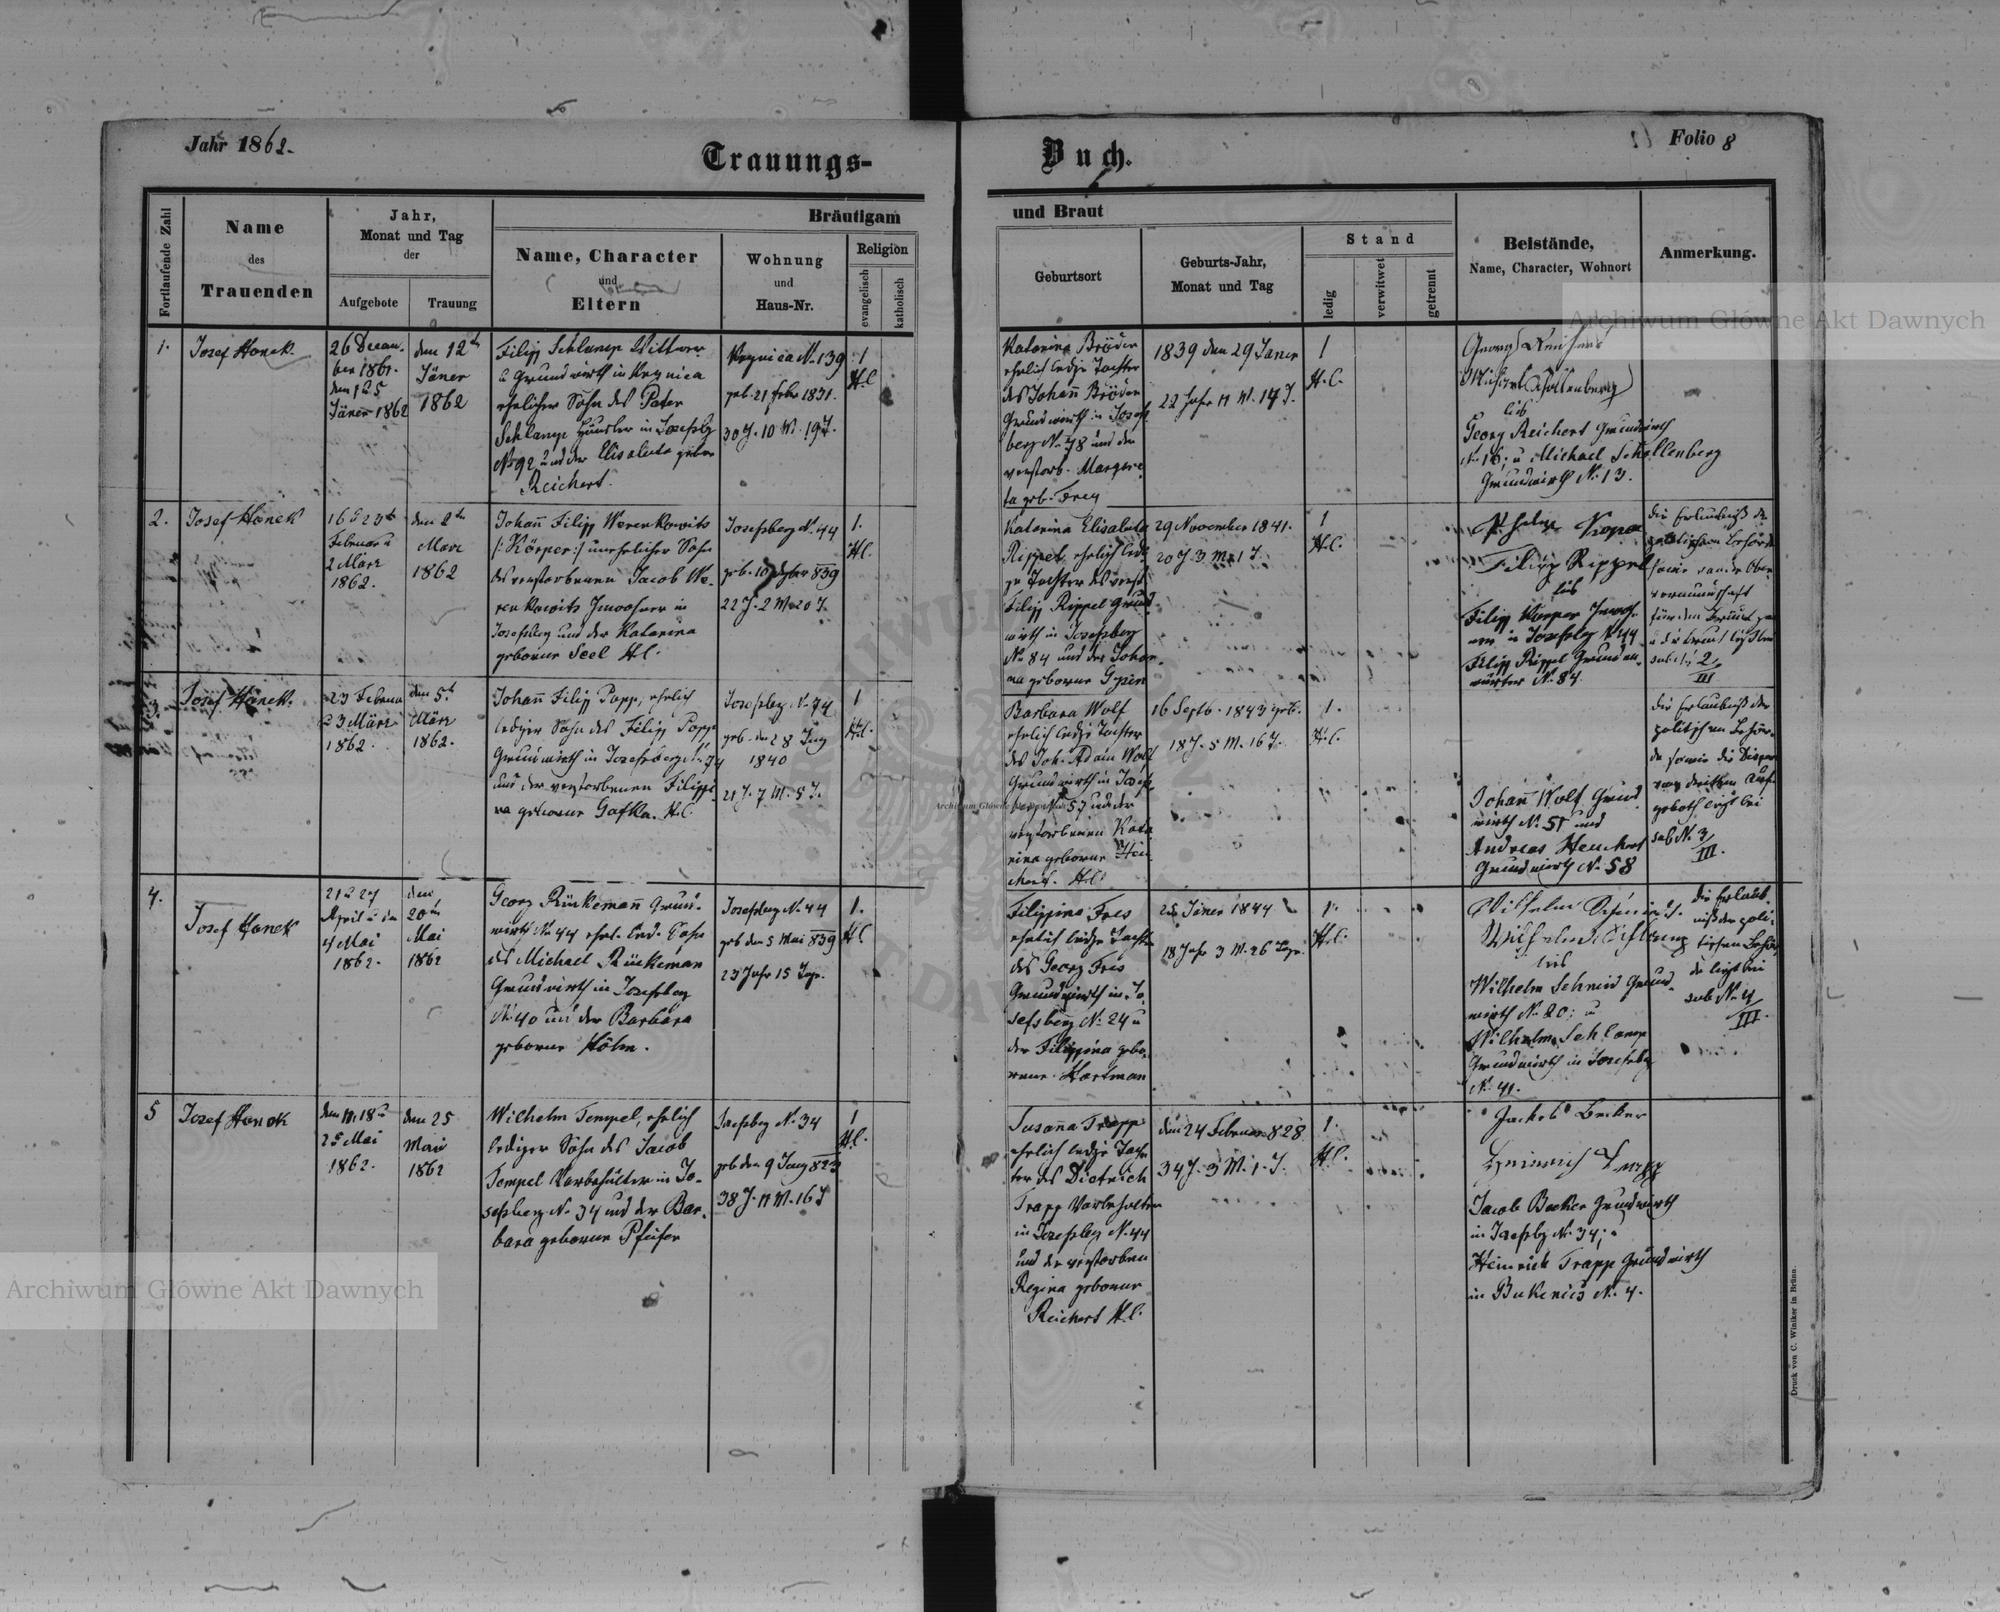 Jahr 1862.
Trauungs-
Buch.
Folio 8
Fortlaufende Zahl
Name
des
Trauenden
Jahr,
Monat und Tag
der
Aufgebote
Trauung
Bräutigam
Name, Character
und
Eltern
Wohnung
und
Haus-Nr.
Religion
evangelisch
katholisch
und Braut
Geburtsort
Geburts-Jahr,
Monat und Tag
Stand
ledig
verwitwet
getrennt
Beistände,
Name, Character, Wohnort
Anmerkung.
1.
Josef Hanek.
26 Decem-
ber 1861.
den 1 u 5
Jäner 1862
den 12ten
Jäner
1862
Filipp Schlamp Wittwer
u Grundwirth in
ehelicher Sohn des Peter
Schlamp Häusler in Josefsbg
No 92 und der Elisabeta gebor
Reichert.
No. 139
geb. 21 febr 1831.
30 J. 10 M. 19 T.
1
H.C.
Katarina Bröder
ehelich ledige Tochter
des Johann Bröder
Grundwirth in Josefs
berg No 78 und der
verstorb. Margare
ta geb. Frey
1839 den 29 Janer
22 Jahr 11 M. 14 T.
1
H.C.
Georg Reichert
Michael Schollenberg
Georg Reichert Grundwirth
No 16; u Michael Schollenberg
Grundwirth No. 13.
2.
Josef Hanek
16 u 23ten
Februar u
2 März
1862.
den 2ten
März
1862
Johann Filipp Werenkowits
/: Körper :/ unehelicher Sohn
des verstorbenen Jacob We-
renkowits Inwohner in
Josefsberg und der Katarina
geborne Seel H.C.
Josefsberg No. 44
geb. 10 839
22 J. 2 M. 20 T.
1.
H.C.
Katarina Elisabeta
Rippel ehelich ledi-
ge Tochter des verst.
Filipp Rippel Grund-
wirth in Josefsberg
No 84 und der Johan-
na geborne
29 November 1841.
20 J. 3 M. 1 T.
1
H.C.
Filipp Rippel
Filipp Körper Inwoh-
ner in Josefsberg No 44
Filipp Rippel Grundan-
No. 84
die Erlaubniß der
politischen Behörde
sowie von der Ober-
vormundschaft
für den Bräut
u die Braut liegt bei
sub 2/
III
3.
Josef Hanek.
23 Februar
u 3 März
1862.
den 5ten
März
1862.
Johann Filip Popp, ehelich
lediger Sohn des Filipp Popp
Grundwirth in Josefsberg No. 74
und der verstorbenen Filippi-
na geborne Gafka. H.C.
Josefsberg No 74
geb. den 28
1840
21 J. 7 M. 5 T.
1
H.C.
Barbara Wolf
ehelich ledige Tochter
des Joh. Adam Wolf
Grundwirth in Josefs-
57 und der
verstorbenen Kata-
rina geborne
H.C.
16 Septb. 1843 geb.
18 J. 5 M. 16 T.
1.
H.C.
Johann Wolf Grund-
wirth No. 57 und
Andreas
Grundwirth No 58
die Erlaubniß der
politischen Behör-
de sowie die Dispen-
Auf-
geboth liegt bei
sub No 3/
III.
4.
Josef Hanek
21 u 27
April u den
4 Mai
1862.
den
20ten
Mai
1862
Georg Rückemann Grund-
wirth No 44 ehel. led. Sohn
des Michael Rückeman
Grundwirth in Josefsberg
No. 40 und der Barbara
geborne Höhn.
Josefsberg No. 44
geb den 5 Mai 839
23 Jahr 15 Tage.
1.
H.C.
Filippina Fres
ehelich ledige Tochter
des Georg Fres
Grundwirth in Jo-
sefsberg No. 24 u
der Filippina gebo-
rene Hartman
25 Jäner 1844
18 Jahr 3 M. 26 Tage.
1.
H.C.
Wilhelm Schmied.
Wilhelm Schmid Grund-
wirth No. 20; u
Wilhelm Schlamp
Grundwirth in Josefsberg
No. 41.
die Erlaub-
niß der poli-
tischen Behör-
de liegt bei
sub No 4/
III.
5
Josef Hanek
den 11, 18 u
25 Mai
1862.
den 25
Mai
1862
Wilhelm Tempel, ehelich
lediger Sohn des Jacob
Tempel Vorbehälter in Jo-
sefsberg No. 34 und der Bar-
bara geborne Pfeifer
Josefsberg No. 34
geb den 9 Juny 823
38 J. 11 M. 16 T
1
H.C.
Susanna Trapp
ehelich ledige Toch-
ter des Dietrich
Trapp Vorbehalter
in Josefsberg No. 44
und der verstorben
Regina geborne
Reichert H.C.
den 24 Februar 828
34 J. 3 M. 1. T.
1.
H.C.
Jackob Becker
Heinrich Trapp
Jacob Becker Grundwirth
in Josefsbg No. 34; u
Heinrich Trapp Grundwirth
in No. 4.
Druck von C. Winiker in Brünn.
Archiwum Główne Akt Dawnych
Archiwum Główne Akt Dawnych